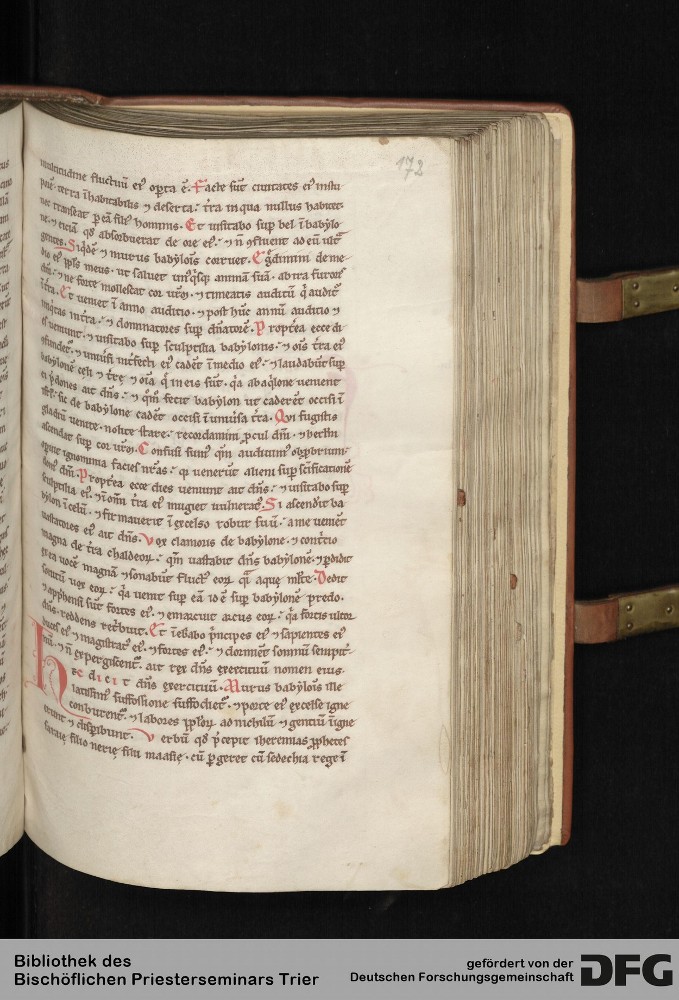 172
multitudine fluctuū ei' opta ē. Facte sūt ciuitates ei' in stu
porē. terra īhabitabilis ⁊ deserta. t̄ra in qua nullus habitet.
nec transeat p eā fili' hominis. Et uisitabo sup bel ī babylo
ne. ⁊ eiciā qđ absorbuerat de ore ei'. ⁊ n̄ ɔfluent ad eū ult̄
gentes. Siqđē ⁊ murus babylōis corruet. Egdimini de me
dio ei' ppls meus. ut saluet unqsq animā suā. ab ira furoris
dñi. ⁊ ne forte mollescat cor urm. ⁊ timeatis auditū q audiet
ī tra. Et ueniet ī anno auditio. ⁊ post hūc annū auditio ⁊
iniqtas in tra. ⁊ dominatores sup dnatorē. Propt̄ea ecce di
es ueniunt. ⁊ uisitabo sup sculptilia babylonis. ⁊ ois t̄ra ei'
ɔfundet. ⁊ uniusi int̄fecti ei' cadēt ī medio ei'. ⁊ laudabūt sup
babylonē celi ⁊ t̄re ⁊ oīa q in eis sūt. qa ab aqlone uenient
ei pdones ait dñs. ⁊ qm fecit babylon ut caderēt occisi ī
isrl. sic de babylone cadēt occisi ī uniusa t̄ra. Qui fugistis
gladiū uenite. nolite stare. recordamini pcul dñi. ⁊ hierlm
ascendat sup cor urm. Confusi sum' qm audiuim' obpbrium.
opuit ignominia facies nras. qa uenerūt alieni sup scificationē
dom' dñi. Propt̄ea ecce dies ueniunt ait dñs. ⁊ uisitabo sup
sculptilia ei'. ⁊ ī omi t̄ra ei' mugiet uulnerat'. Si ascendit ba
bylon ī celū. ⁊ firmauerit ī excelso robur suū. a me uenient
uastatores ei' ait dñs. Vox clamoris de babylone. ⁊ contritio
magna de t̄ra chaldeor. qm uastabit dñs babylonē. ⁊ pdidit
ex ea uocē magnā ⁊ sonabūt fluct' eor qi aque mlte. Dedit
sonitū uox eor. qa uenit sup eā id ē sup babylonē predo.
⁊ apphensi sūt fortes ei'. ⁊ emarcuit arcus eor. qa fortis ultor
dñs. reddens retbuit. Et īebabo pncipes ei' ⁊ sapientes ei'
duces ei' ⁊ magistrat' ei'. ⁊ fortes ei'. ⁊ dormiēt somnū sempit
nū. ⁊ n̄ expergiscent. ait rex dñs exercituū nomen eius.
Hec dicit dñs exercituū. Murus babylōis ille
latissim' suffossione suffodiet. ⁊ porte ei' excelse igne
conburent. ⁊ labores pplor ad nichilū ⁊ gentiū ī igne
erunt ⁊ dispibunt. Verbū qđ pcepit iheremias ppheta
saraie filio nerie filii maasie. cū pgeret cū sedechia rege ī
Bibliothek des
Bischöflichen Priesterseminars Trier
gefördert von der
Deutschen Forschungsgemeinschaft
DFG